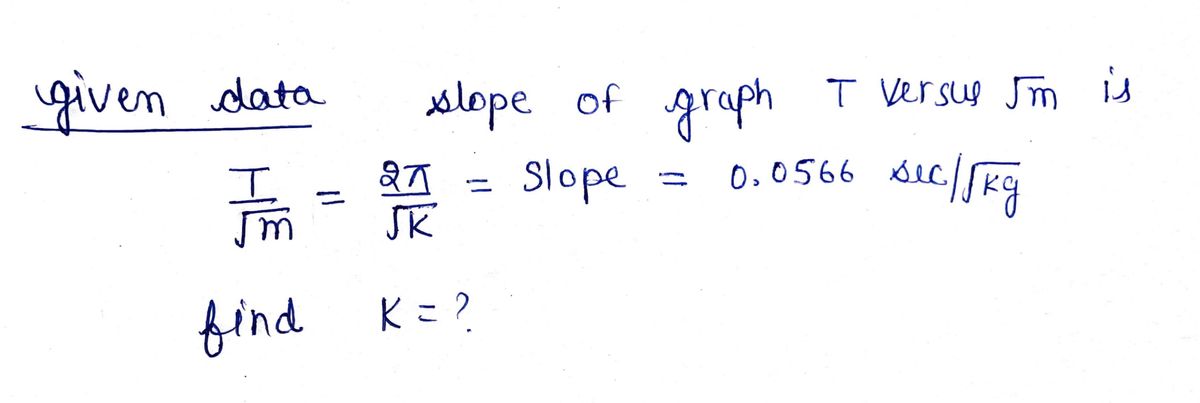 given data slope of graph T versus √m is
T/√m = 2π/√K = Slope = 0.0566 sec/√kg
find K = ?